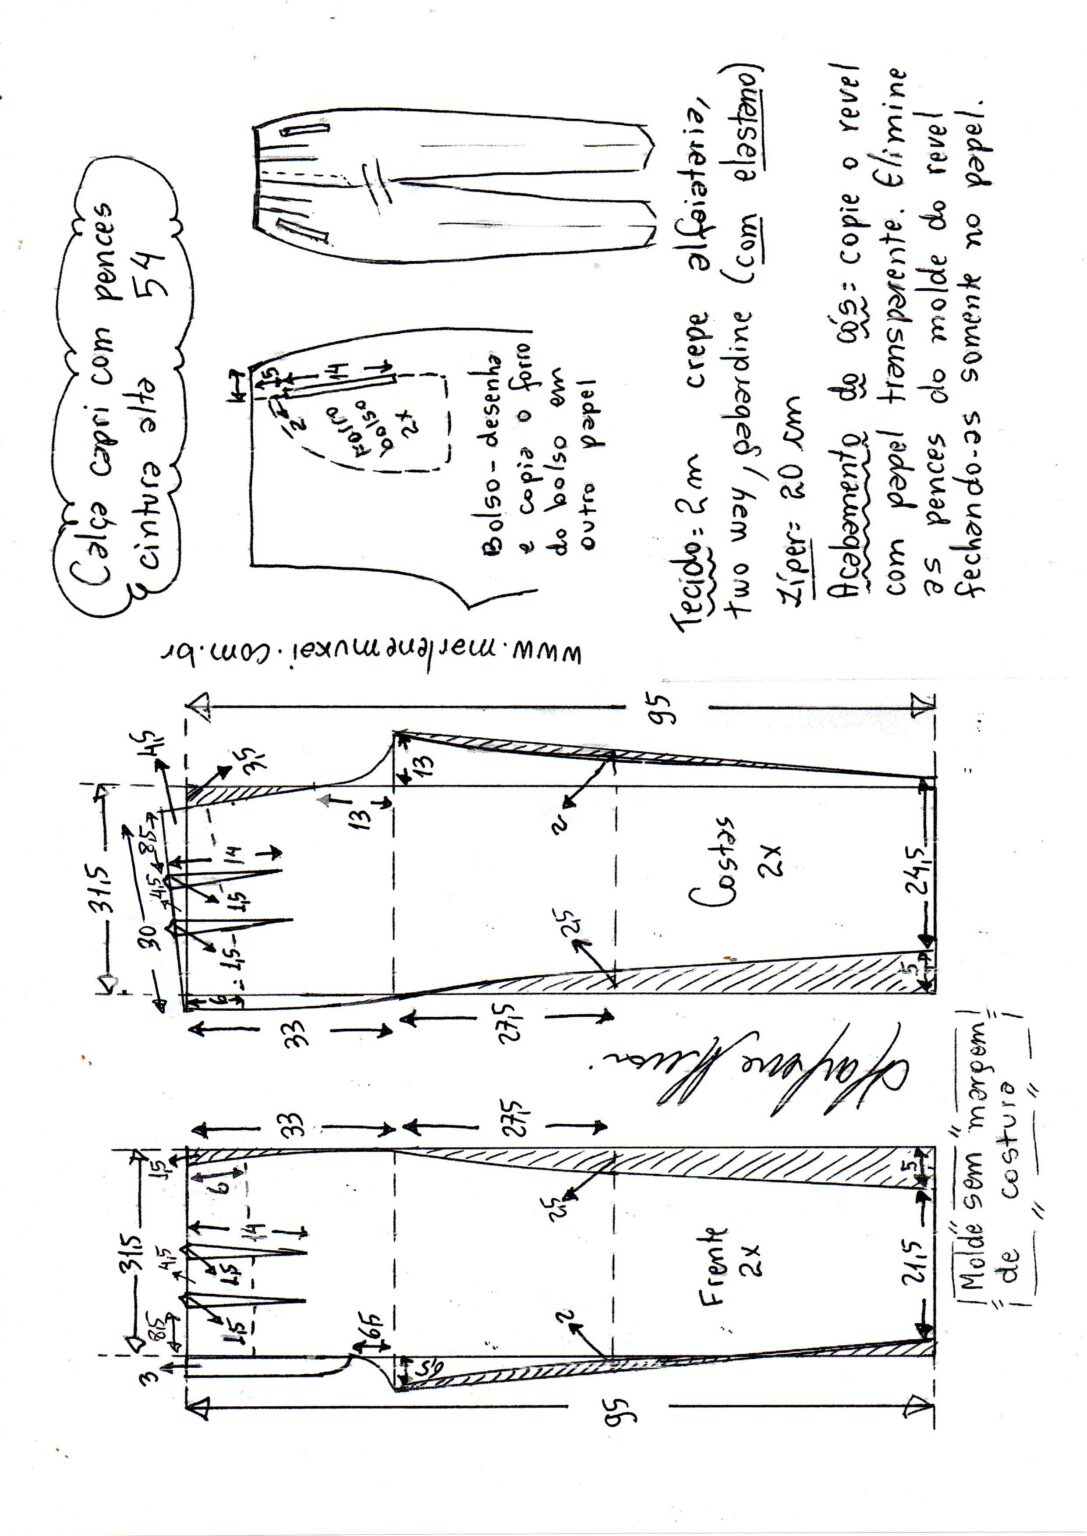 Calça capri com pences
e cintura alta 54
1
1,5
14
2
2
Forro
bolso
2x
Bolso - desenha
e copia o forro
do bolso em
outro papel
Tecido = 2m crepe alfaiataria,
two way, gabardine (com elastano)
Zíper = 20 cm
Acabamento do cós = copie o revel
com papel transparente. Elimine
as pences do molde do revel
fechando-as somente no papel.
www.marlenemukai.com.br
31,5
3
8,5
4,5
1,5
1,5
1,5
14
6
33
6,5
6,5
27,5
2
2,5
Frente
2x
21,5
5
95
Marlene Mukai
31,5
30
4,5
8,5
4,5
3,5
14
1,5
1,5
6
33
13
13
27,5
2
2,5
Costas
2x
24,5
5
95
Molde sem margem
de costura